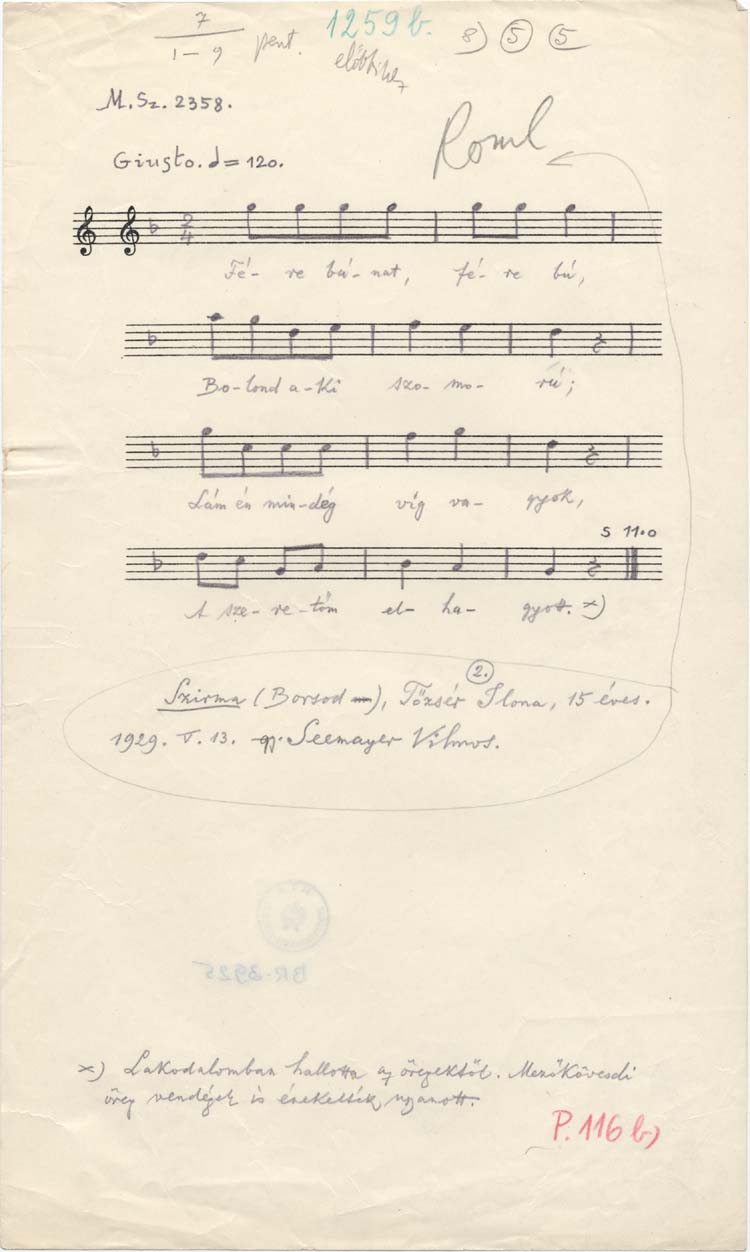 7
1–9 pent.
1259 b.
előbbihez
8) 5 5
M. Sz. 2358.
Giusto. = 120.
2
4
Fé- re bú- nat, fé- re bú,
Bo-lond a-ki szo- mo- rú;
Lám én min-dég víg va- gyok,
S 11.0
A sze- re-tőm el- ha- gyott. x)
2.
Szirma (Borsod), Tőzsér Ilona, 15 éves.
1929. V. 13. gy. Seemayer Vilmos.
BR-3925
x) Lakodalomban hallotta az öregektől. Mezőkövesdi
öreg vendégek is énekelték ugyanott.
P. 116 b)